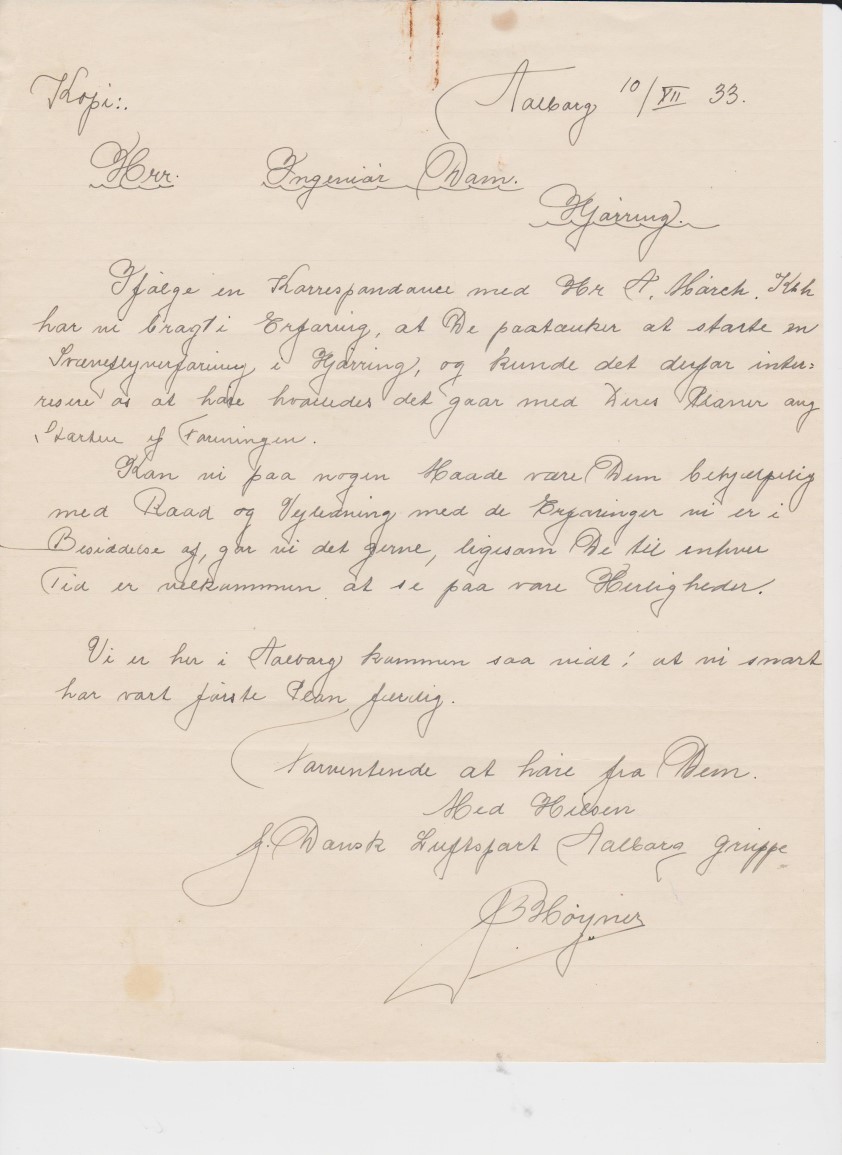 Kopi:. Aalborg 10/XII 33.
Hrr. Ingeniør Dam.
Hjørring.
Ifølge en Korrespondance med Hr A. Mørch. Kbh
har vi bragt i Erfaring, at De paatænker at starte en
Svæveflyveforening i Hjørring, og kunde det derfor inter=
resere os at høre hvorledes det gaar med Deres Planer ang
Starten af Foreningen.
Kan vi paa nogen Maade være Dem behjælpelig
med Raad og Vejledning med de Erfaringer vi er i
Besiddelse af, gør vi det gerne, ligesom De til enhver
Tid er velkommen at se paa vore Herligheder.
Vi er her i Aalborg kommen saa vidt; at vi snart
har vort første Plan færdig.
Forventende at høre fra Dem.
Med Hilsen
f. Dansk Luftsport Aalborg Gruppe